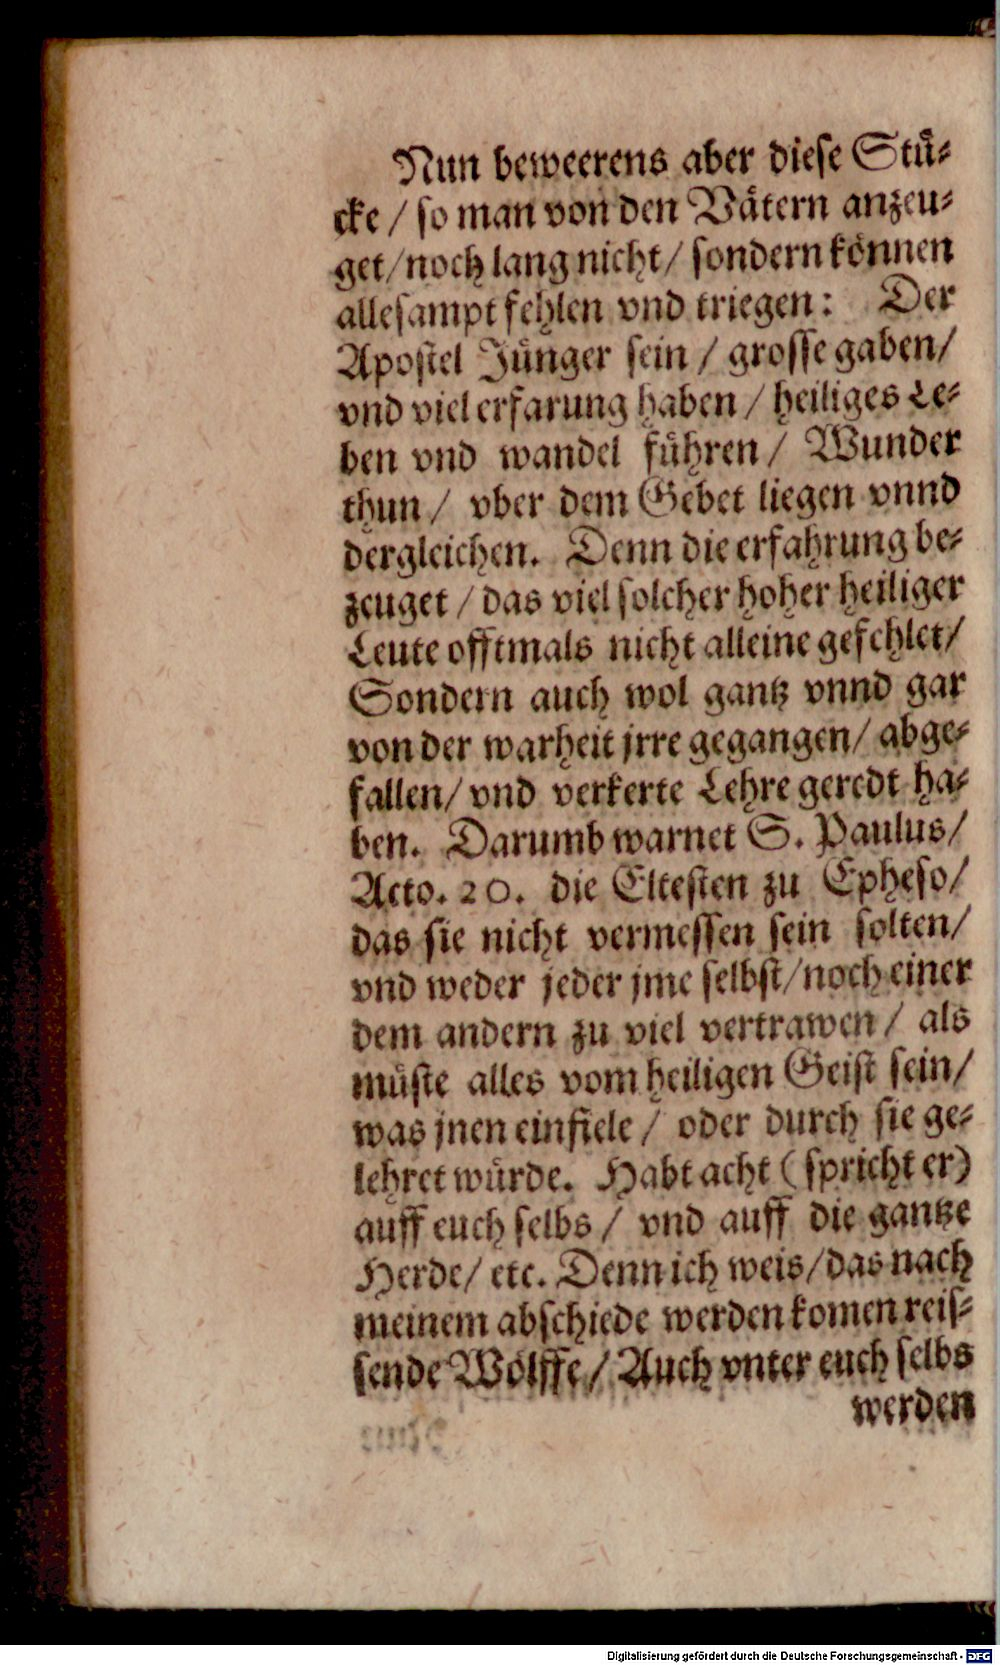 Nun beweerens aber dieſe Stuͤ⸗
cke / ſo man von den Vaͤtern anzeu⸗
get / noch lang nicht / ſondern koͤnnen
alleſampt fehlen vnd triegen: Der
Apoſtel Juͤnger ſein / groſſe gaben /
vnd viel erfarung haben / heiliges Le⸗
ben vnd wandel fuͤhren / Wunder
thun / vber dem Gebet liegen vnnd
dergleichen. Denn die erfahrung be⸗
zeuget / das viel ſolcher hoher heiliger
Leute offtmals nicht alleine gefehlet /
Sondern auch wol gantz vnnd gar
von der warheit jrre gegangen / abge⸗
fallen / vnd verkerte Lehre geredt ha⸗
ben. Darumb warnet S. Paulus /
Acto. 20. die Elteſten zu Epheſo /
das ſie nicht vermeſſen ſein ſolten /
vnd weder jeder jme ſelbſt / noch einer
dem andern zu viel vertrawen / als
muͤſte alles vom heiligen Geiſt ſein /
was jnen einfiele / oder durch ſie ge⸗
lehret wuͤrde. Habt acht (ſpricht er)
auff euch ſelbs / vnd auff die gantze
Herde / etc. Denn ich weis / das nach
meinem abſchiede werden komen reiſ⸗
ſende Woͤlffe / Auch vnter euch ſelbs
werden
Digitalisierung gefördert durch die Deutsche Forschungsgemeinschaft - DFG